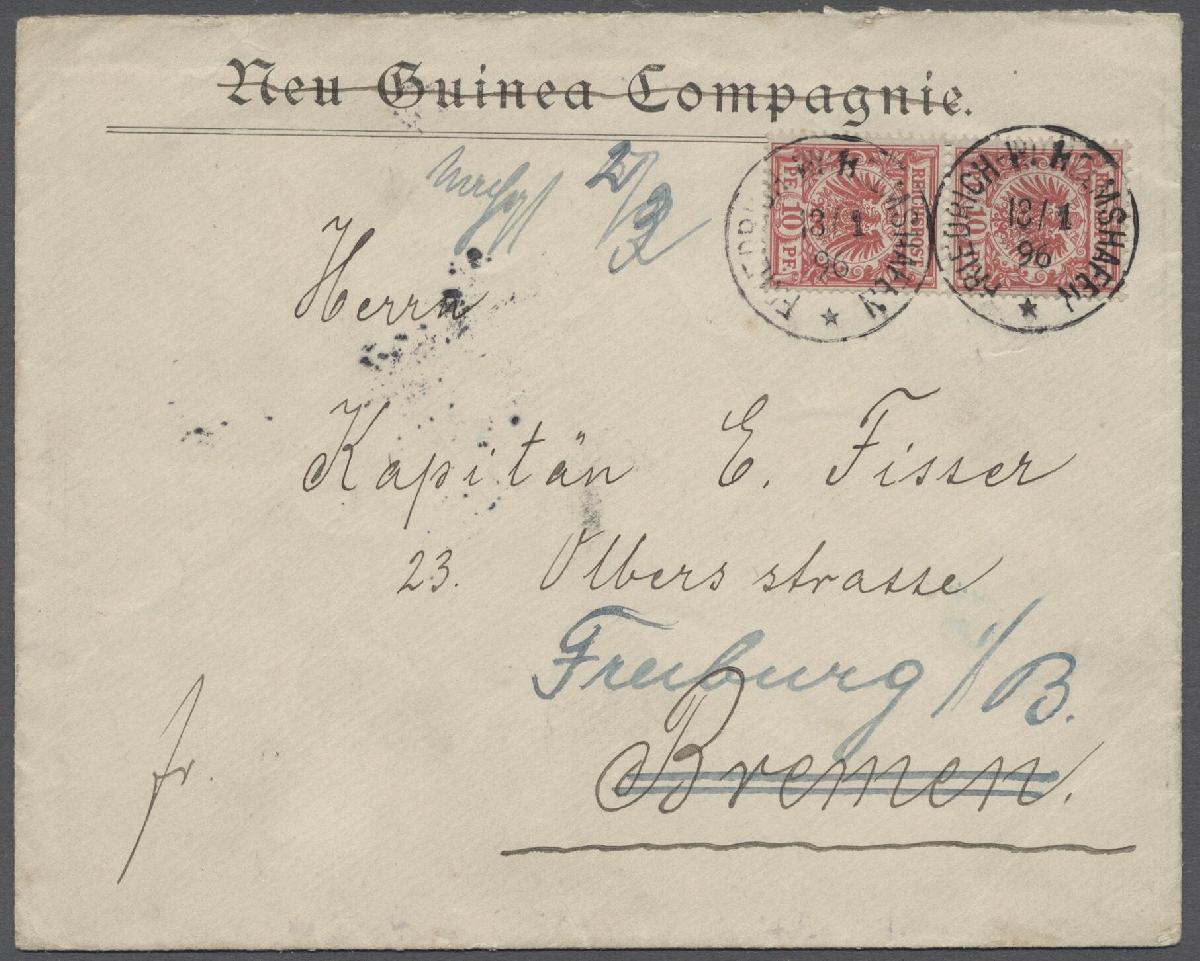 Neu Guinea Compagnie.
27/2
REICHSPOST
PF. 10 PF.
10
FRIEDRICH-WILHELMSHAFEN
13/1
96
FRIEDRICH-WILHELMSHAFEN
13/1
96
Herrn
Kapitän E. Fisser
23. Olbersstrasse
Freiburg i/B.
Bremen.
fr.